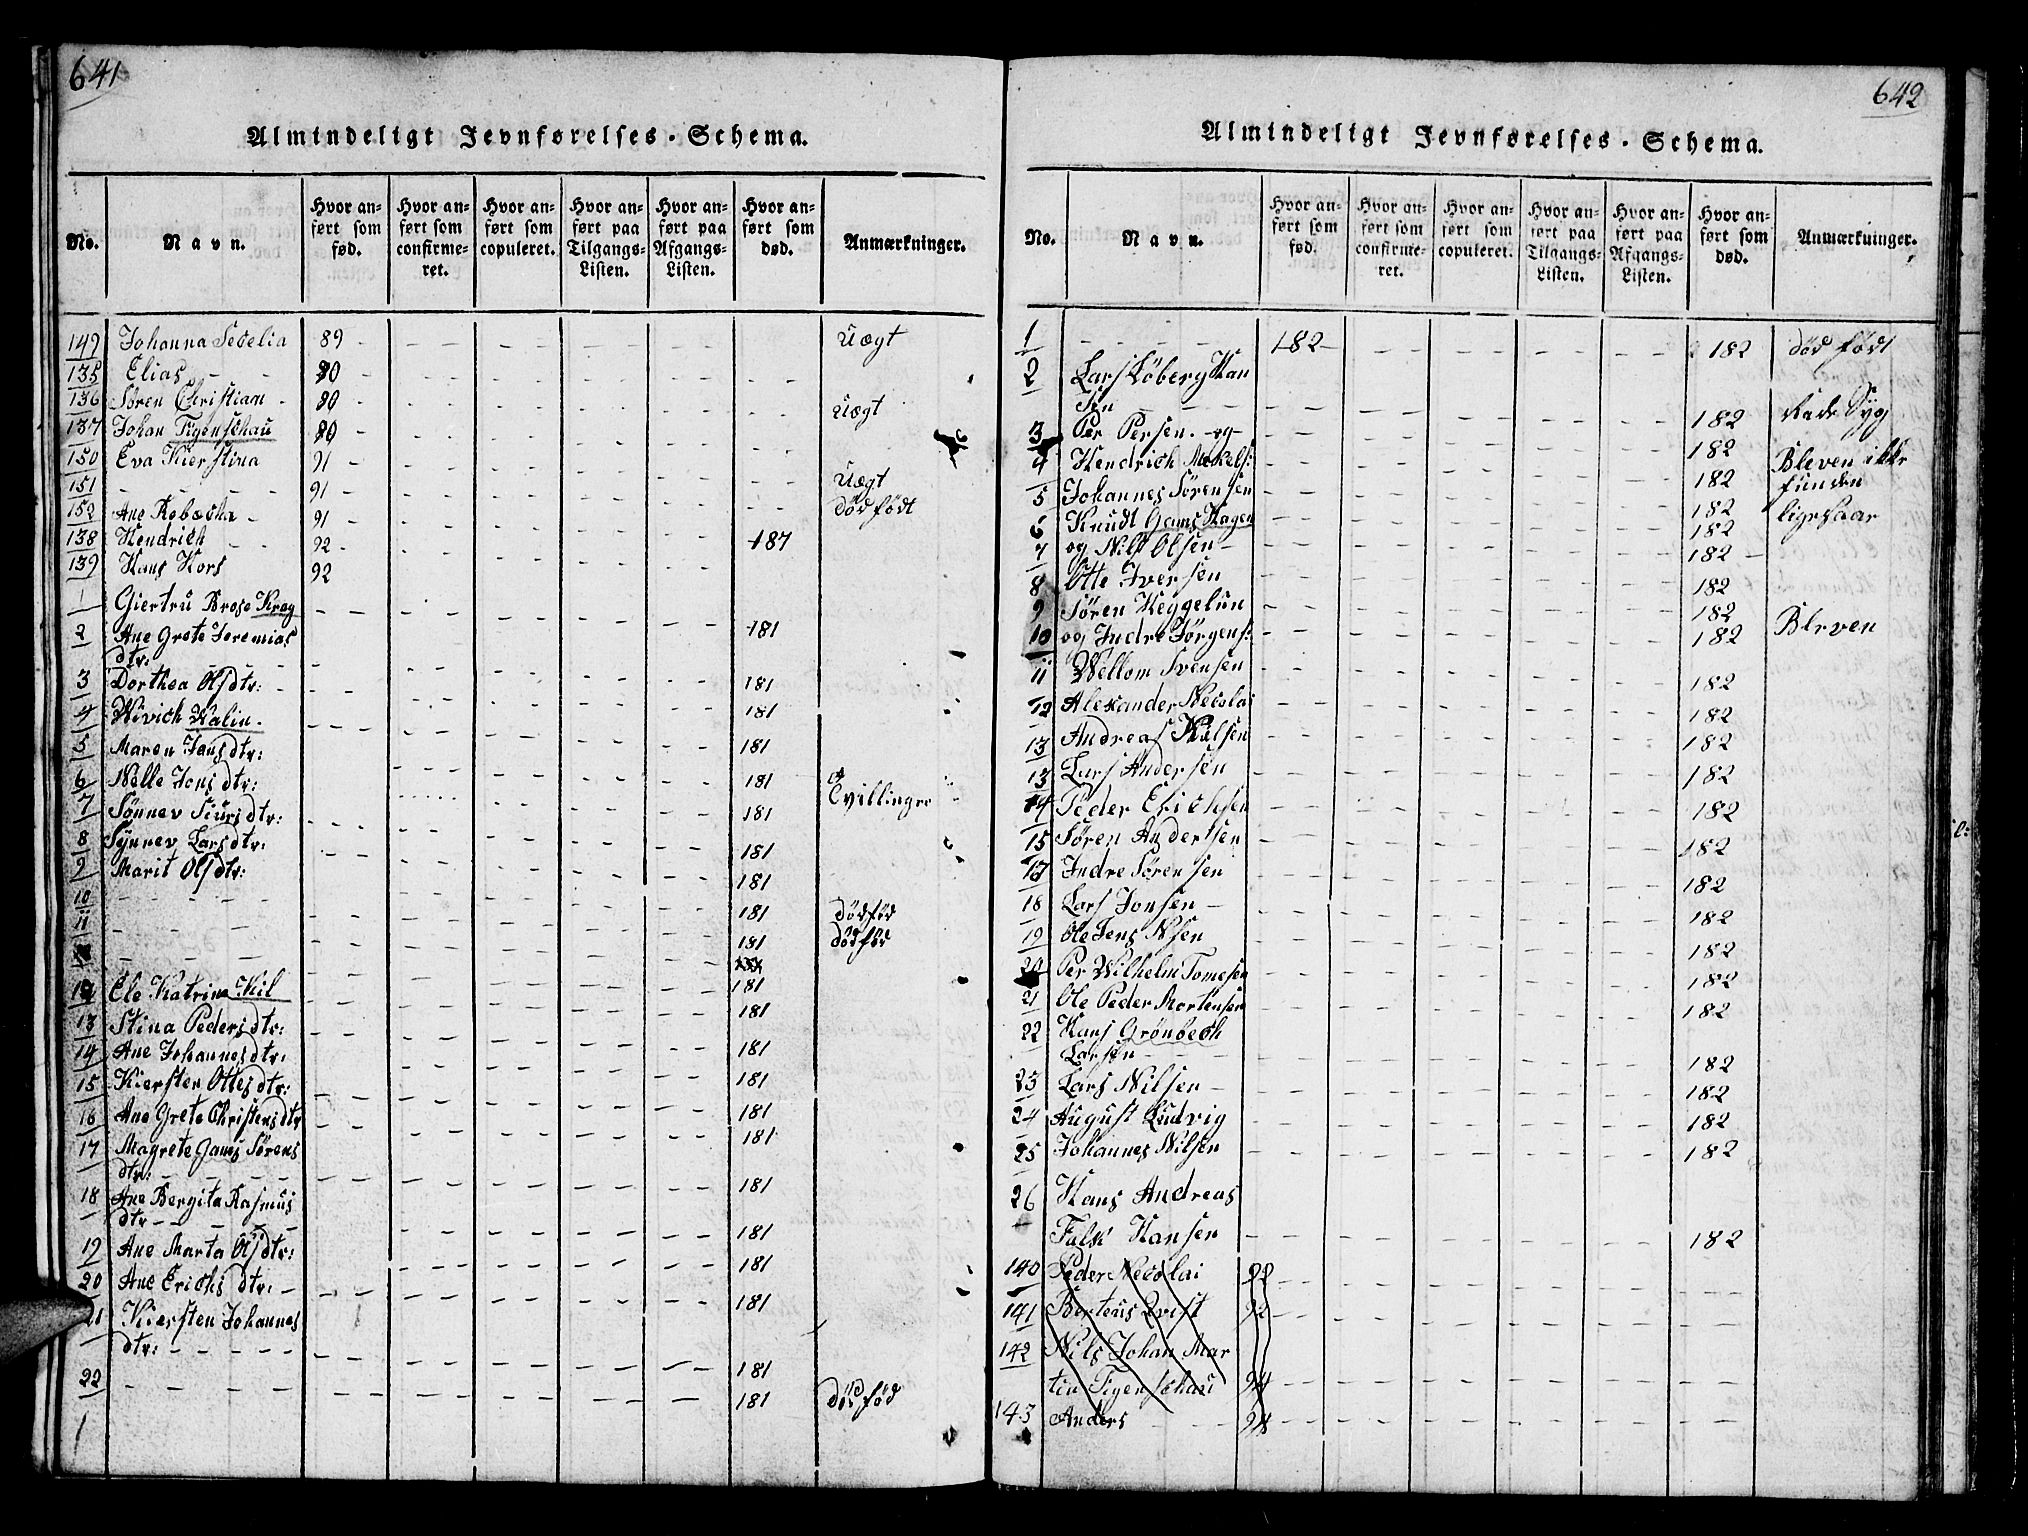 641
Almindeligt Jevnførelses-Schema.
No. Navn. Hvor anført som fød. Hvor anført som confirmeret. Hvor anført som copuleret. Hvor anført paa Tilgangs-Listen. Hvor anført paa Afgangs-Listen. Hvor anført som død. Anmærkninger.
149 Johanna Sedelia 89 Uægt
135 Elias 90
136 Søren Christian 90 Uægt
137 Johan Figenschau 90
150 Eva Kierstina 91 Uægt
151 91 dødfødt
152 Ane Rebecka 91
138 Hendrich 92 187
139 Hans Kors 92
1 Giertru Brose Krog 181
2 Ane Grete Jeremias
dtr:
3 Dorthea Olsdtr: 181
4 Wivich Halin 181
5 Maren Jansdtr: 181
6 Nille Jonsdtr: 181
7 Sønnev Siursdtr: 181 Tvillingre
8 Synnev Larsdtr: 181
9 Marit Olsdtr: 181
10 181 dødfød
11 181 dødfød
12 Ele Katrina Kil 181
13 Stina Pedersdtr: 181
14 Ane Johannesdtr: 181
15 Kiersten Ottesdtr: 181
16 Ane Grete Christensdtr 181
17 Magrete Gams Sørens 181
dtr:
18 Ane Bergita Rasmus 181
dtr
19 Ane Marta Olsdtr: 181
20 Ane Erichsdtr: 181
21 Kiersten Johannes 181
dtr: 181
22 181 dødfød
642
Almindeligt Jevnførelses-Schema.
No. Navn. Hvor anført som fød. Hvor anført som confirmeret. Hvor anført som copuleret. Hvor anført paa Tilgangs-Listen. Hvor anført paa Afgangs-Listen. Hvor anført som død. Anmærkninger.
1 182 182 død født
2 Lars Köberg Han
sen 182 Rade Syg
3 Per Persen og 182
4 Hendrich Mekels: 182 Bleven ikke
5 Johannes Sørensen 182 funden
6 Knudt Gams Hagen 182 ligesaar
7 og Nils Olsen 182
8 Otte Iversen 182
9 Søren Heggelun 182
10 og Indre Jørgens: 182 Bleven
11 Wellom Svensen 182
12 Alexander Necolai 182
13 Andreas Hulsen 182
13 Lars Andersen 182
14 Peder Erichsen 182
15 Søren Andersen 182
17 Indre Sørensen 182
18 Lars Jonsen 182
19 Ole Jens Nsen 182
20 Per Wilhelm Tomesen 182
21 Ole Peder Mortensen 182
22 Hans Grønbech
Larsen 182
23 Lars Nilsen 182
24 August Ludvig 182
25 Johannes Nilsen 182
26 Hans Andreas
Falk Hansen 182
140 Peder Necolai 92
141 Berteus Qvist 92
142 Nils Johan Mar
tin Figenschau 94
143 Anders 94